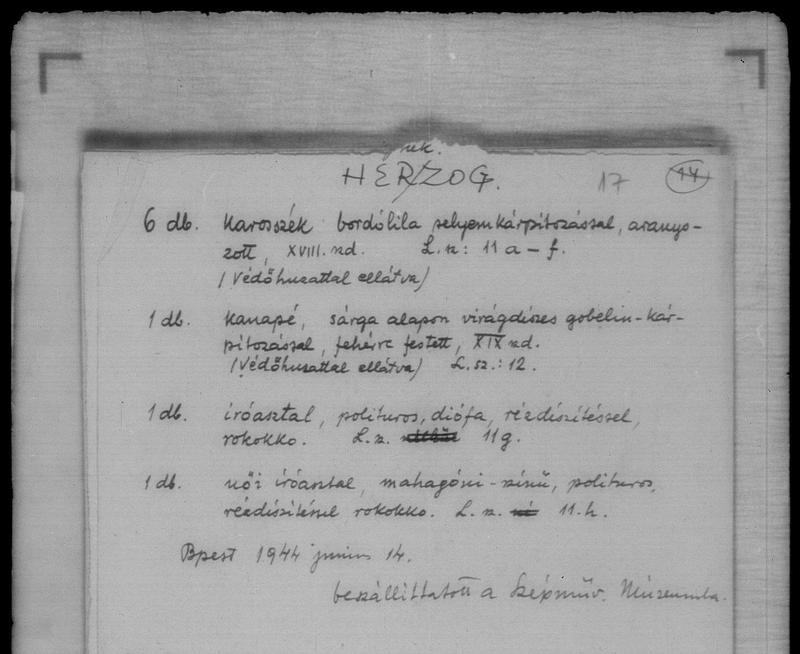 HERZOG. 17 14
6 db. Karosszék bordólila selyemkárpitozással, aranyo-
zott, XVIII. szd. L. sz: 11 a – f.
(Védőhuzattal ellátva)
1 db. Kanapé, sárga alapon virágdíszes gobelin-kár-
pitozással, fehérre festett, XIX szd.
(Védőhuzattal ellátva) L. sz.: 12.
1 db. íróasztal, politúros, diófa, rézdíszítéssel,
rokokko. L. sz. 11 g.
1 db. női íróasztal, mahagóni-színű, politúros,
rézdíszítéssel rokokko. L. sz. 11.h.
Bpest 1944 junius 14.
beszállittatott a Szépműv. Múzeumba.